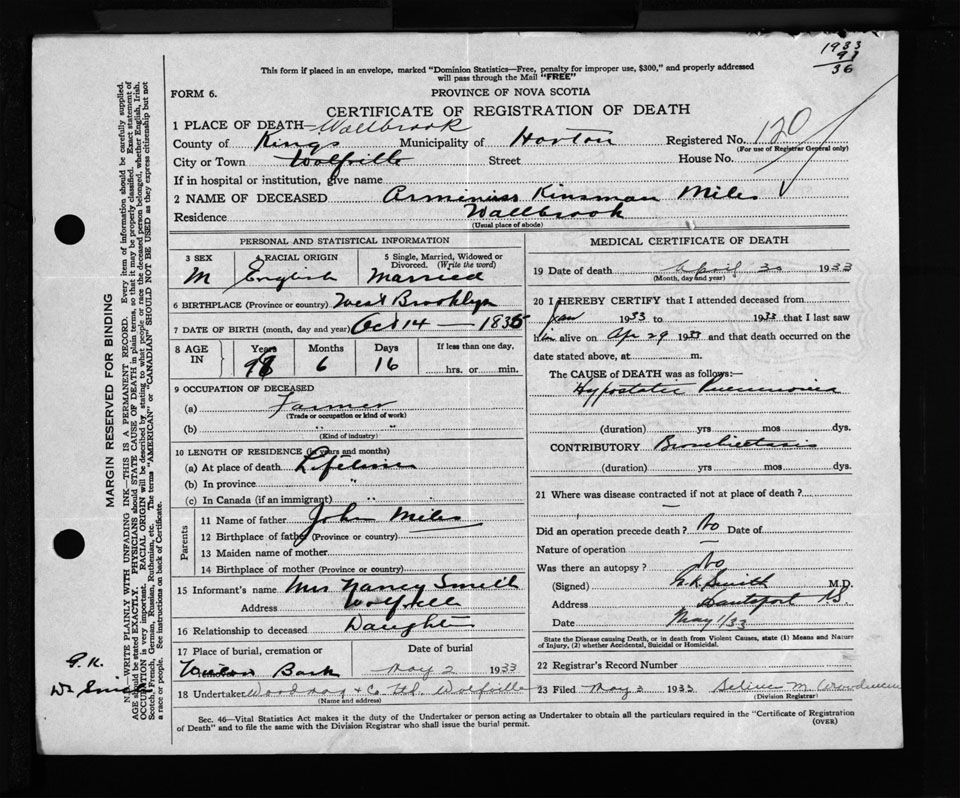 1933
91
36
This form if placed in an envelope, marked "Dominion Statistics—Free, penalty for improper use, $300," and properly addressed
will pass through the Mail "FREE"
FORM 6.
PROVINCE OF NOVA SCOTIA
CERTIFICATE OF REGISTRATION OF DEATH
1 PLACE OF DEATH— Wallbrook
County of Kings Municipality of Horton Registered No. 120
(For use of Registrar General only)
City or Town Wolfville Street House No.
If in hospital or institution, give name
2 NAME OF DECEASED Arminius Kinsman Miles
Residence Wallbrook
(Usual place of abode)
PERSONAL AND STATISTICAL INFORMATION
3 SEX 4 RACIAL ORIGIN 5 Single, Married, Widowed or
Divorced. (Write the word)
M English Married
6 BIRTHPLACE (Province or country) West Brooklyn
7 DATE OF BIRTH (month, day and year) Oct 14 — 1835
8 AGE IN Years Months Days If less than one day,
6 16 hrs. or min.
9 OCCUPATION OF DECEASED
(a) Farmer
(Trade or occupation or kind of work)
(b)
(Kind of industry)
10 LENGTH OF RESIDENCE (in years and months)
(a) At place of death Lifetime
(b) In province "
(c) In Canada (if an immigrant) "
Parents
11 Name of father John Miles
12 Birthplace of father (Province or country)
13 Maiden name of mother
14 Birthplace of mother (Province or country)
15 Informant's name Mrs Nancy Smith
Address Wolfville
16 Relationship to deceased Daughter
17 Place of burial, cremation or Date of burial
Bank May 2 1933
18 Undertaker Woodman & Co. Ltd. Wolfville
(Name and address)
MEDICAL CERTIFICATE OF DEATH
19 Date of death April 30 1933
(Month, day and year)
20 I HEREBY CERTIFY that I attended deceased from
Jan 1933 to 1933 that I last saw
him alive on Apr 29 1933 and that death occurred on the
date stated above, at m.
The CAUSE of DEATH was as follows:—
Hypostatic Pneumonia
(duration) yrs mos dys.
CONTRIBUTORY Bronchiectasis
(duration) yrs mos dys.
21 Where was disease contracted if not at place of death?
—
Did an operation precede death? No Date of
Nature of operation —
Was there an autopsy? No
(Signed) G.K. Smith M.D.
Address Hantsport N.S.
Date May 1/33
State the Disease causing Death, or in death from Violent Causes, state (1) Means and Nature
of Injury, (2) whether Accidental, Suicidal or Homicidal.
22 Registrar's Record Number
23 Filed May 3 1933 M. Woodman
(Division Registrar)
Sec. 46—Vital Statistics Act makes it the duty of the Undertaker or person acting as Undertaker to obtain all the particulars required in the "Certificate of Registration
of Death" and to file the same with the Division Registrar who shall issue the burial permit.
(OVER)
MARGIN RESERVED FOR BINDING
N.B.—WRITE PLAINLY WITH UNFADING INK—THIS IS A PERMANENT RECORD. Every item of information should be carefully supplied.
AGE should be stated EXACTLY. PHYSICIANS should STATE CAUSE OF DEATH in plain terms, so that it may be properly classified. Exact statement of
OCCUPATION is very important. RACIAL ORIGIN will be described by stating to what people or race the deceased person belonged, whether English, Irish,
Scotch, French, German, Russian, Ruthenian, etc. The terms "AMERICAN" or "CANADIAN" SHOULD NOT BE USED as they express citizenship but not
a race or people. See instructions on back of Certificate.
G.K.